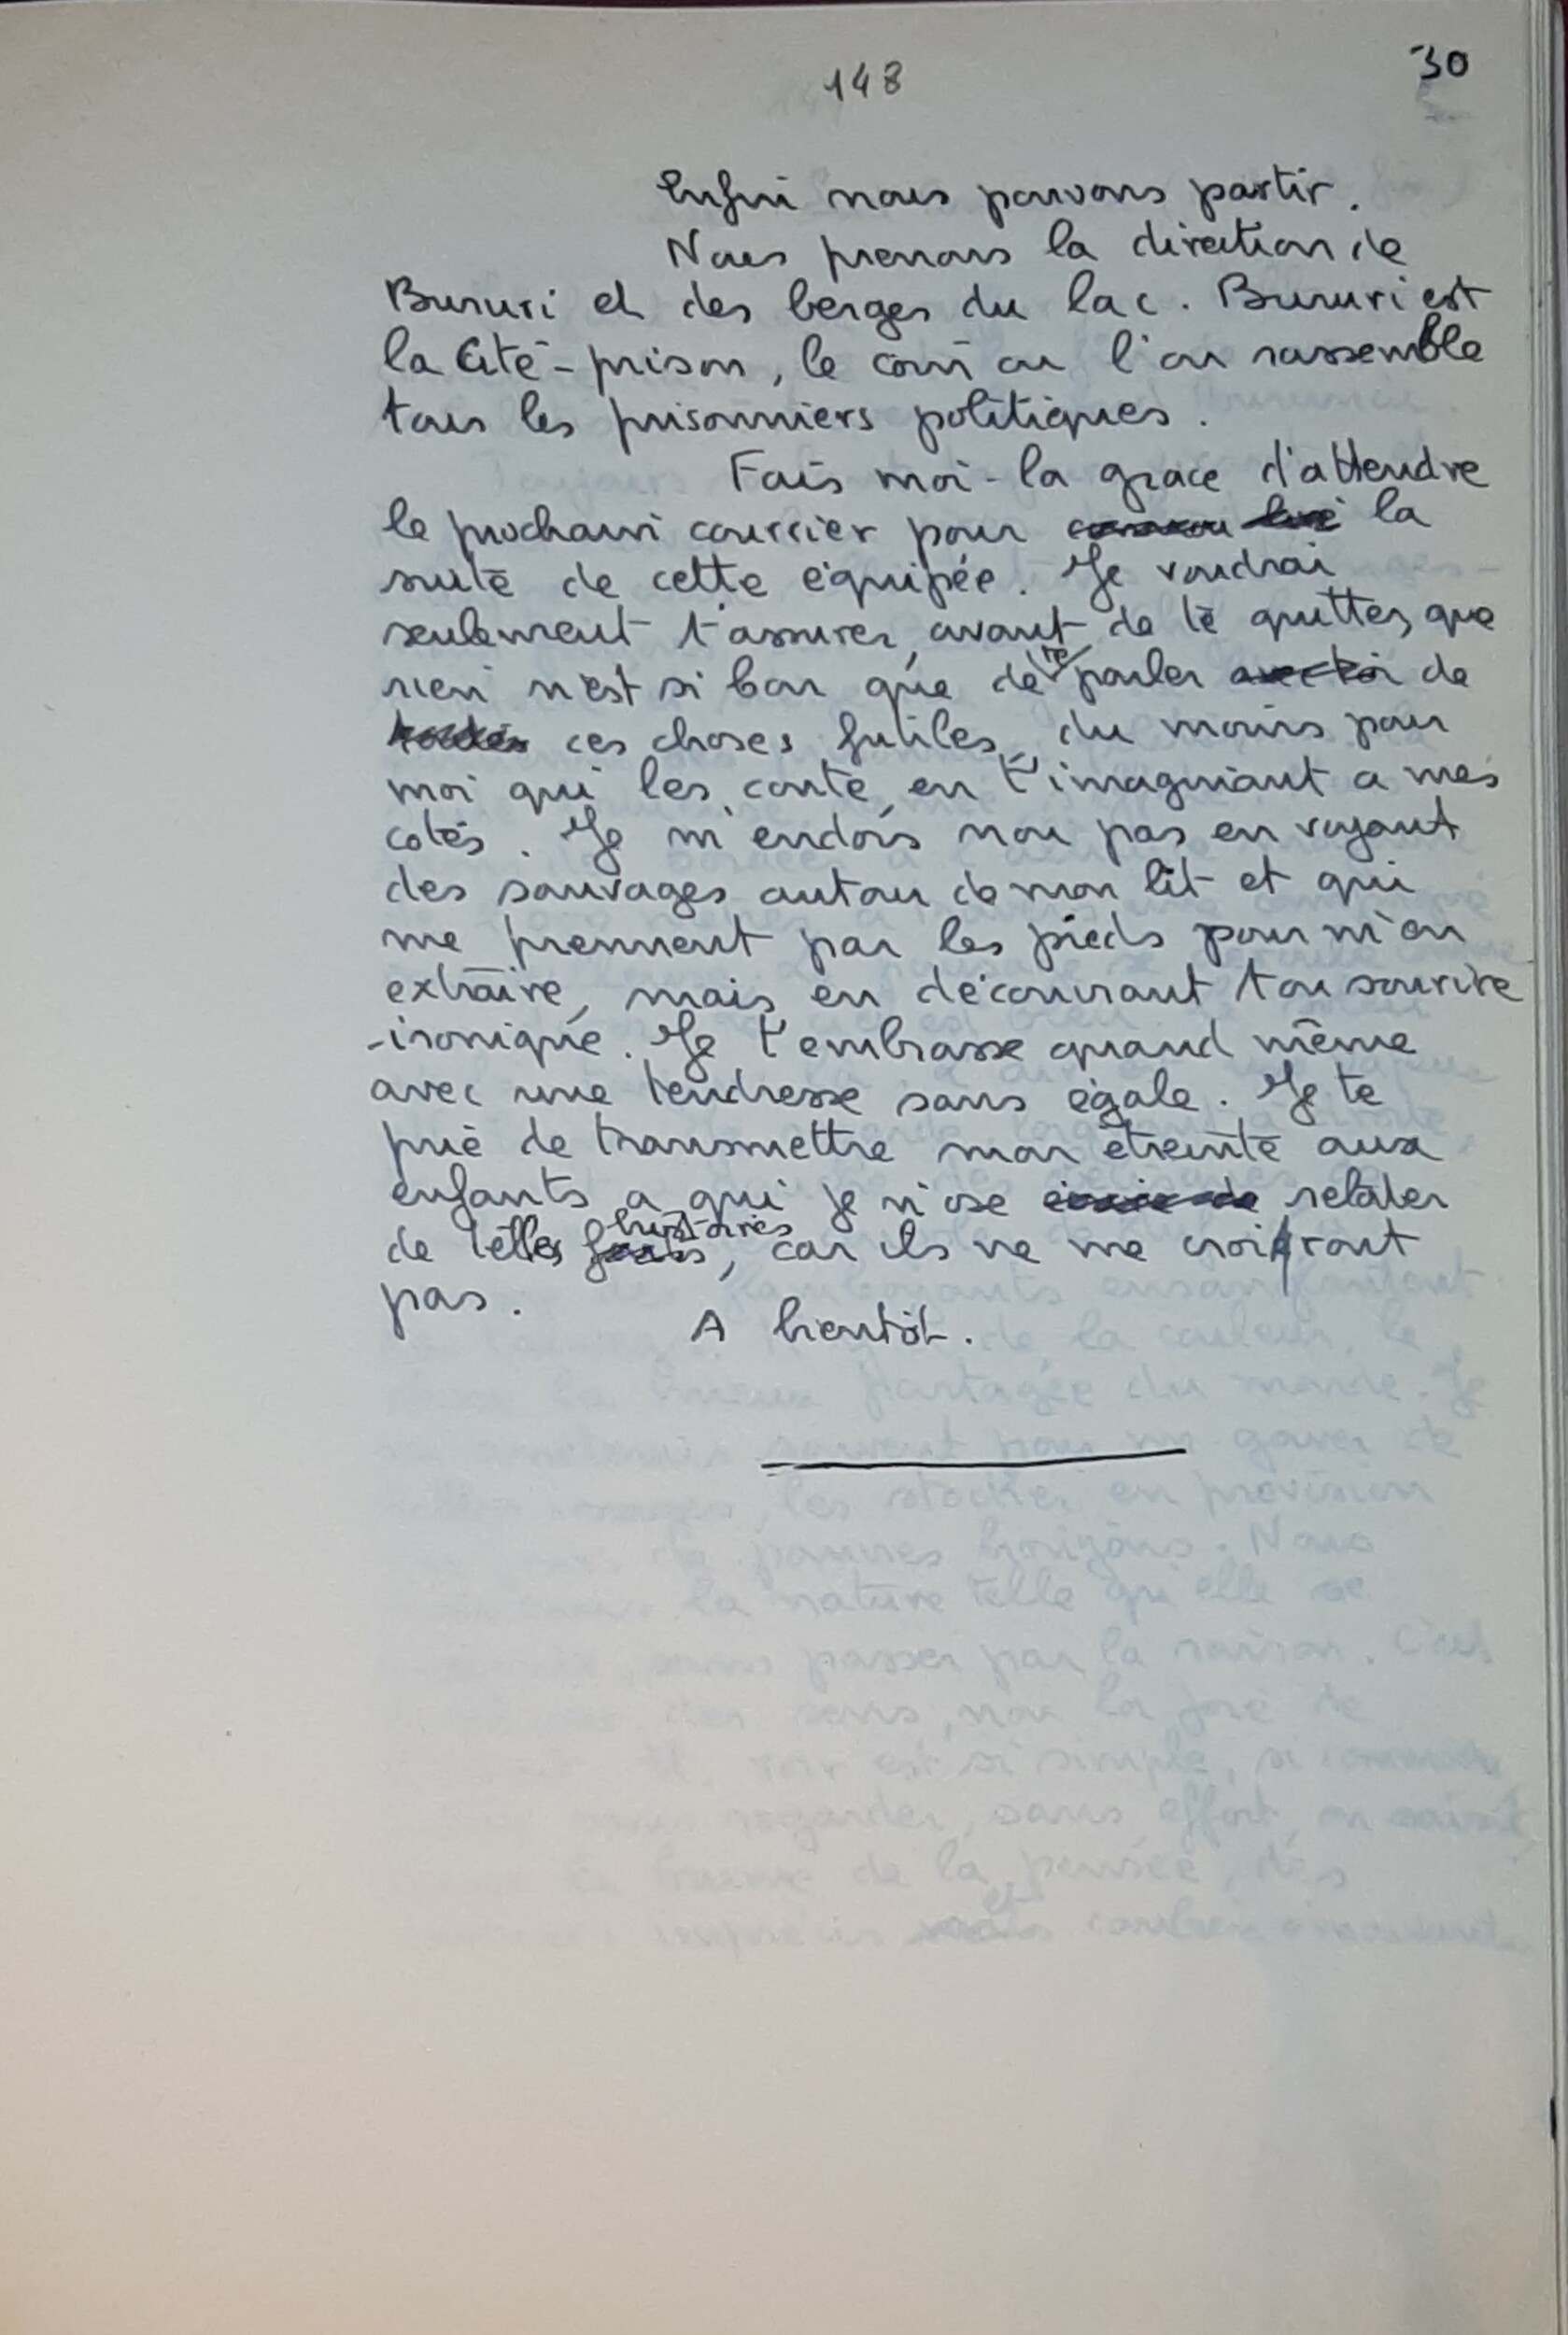 148
30
Enfin nous pouvons partir.
Nous prenons la direction de
Bururi et des berges du lac. Bururi est
la Cité-prison, le coin ou l'on rassemble
tous les prisonniers politiques.
Fais moi-la grace d'attendre
le prochain courrier pour la
suite de cette équipée. Je voudrai
seulement t'assurer, avant de te quitter, que
rien n'est si bon que de reparler avec toi de
toutes ces choses futiles, du moins pour
moi qui les conte, en t'imaginant a mes
cotés. Je m'endors non pas en voyant
des sauvages autour de mon lit et qui
me prennent par les pieds pour m'en
extraire, mais en découvrant ton sourire
-ironique. Je t'embrasse quand même
avec une tendresse sans égale. Je te
prie de transmettre mon étreinte aux
enfants a qui je n'ose relater
de telles histoires, car ils ne me croiront
pas.
A bientôt.